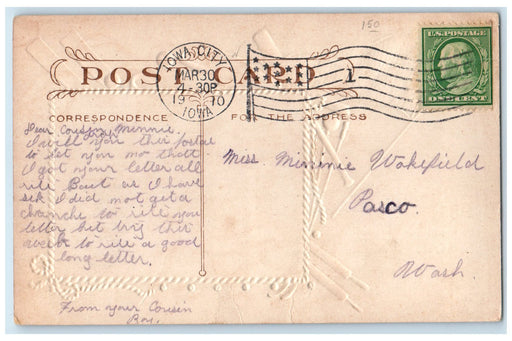 150
U.S. POSTAGE
ONE CENT
IOWA CITY
MAR 30
4-30P
1910
IOWA
1
POST CARD
CORRESPONDENCE
FOR THE ADDRESS
Dear Cousin Minnie,
I will you this postae
to let you no that
I got your letter all
rite But as I have
sek I did not get a
chanche to rite you
letter but try this
week to rite a good
long letter.
From your Cousin
Roy.
Miss Minnie Wakefield
Pasco
Wash.